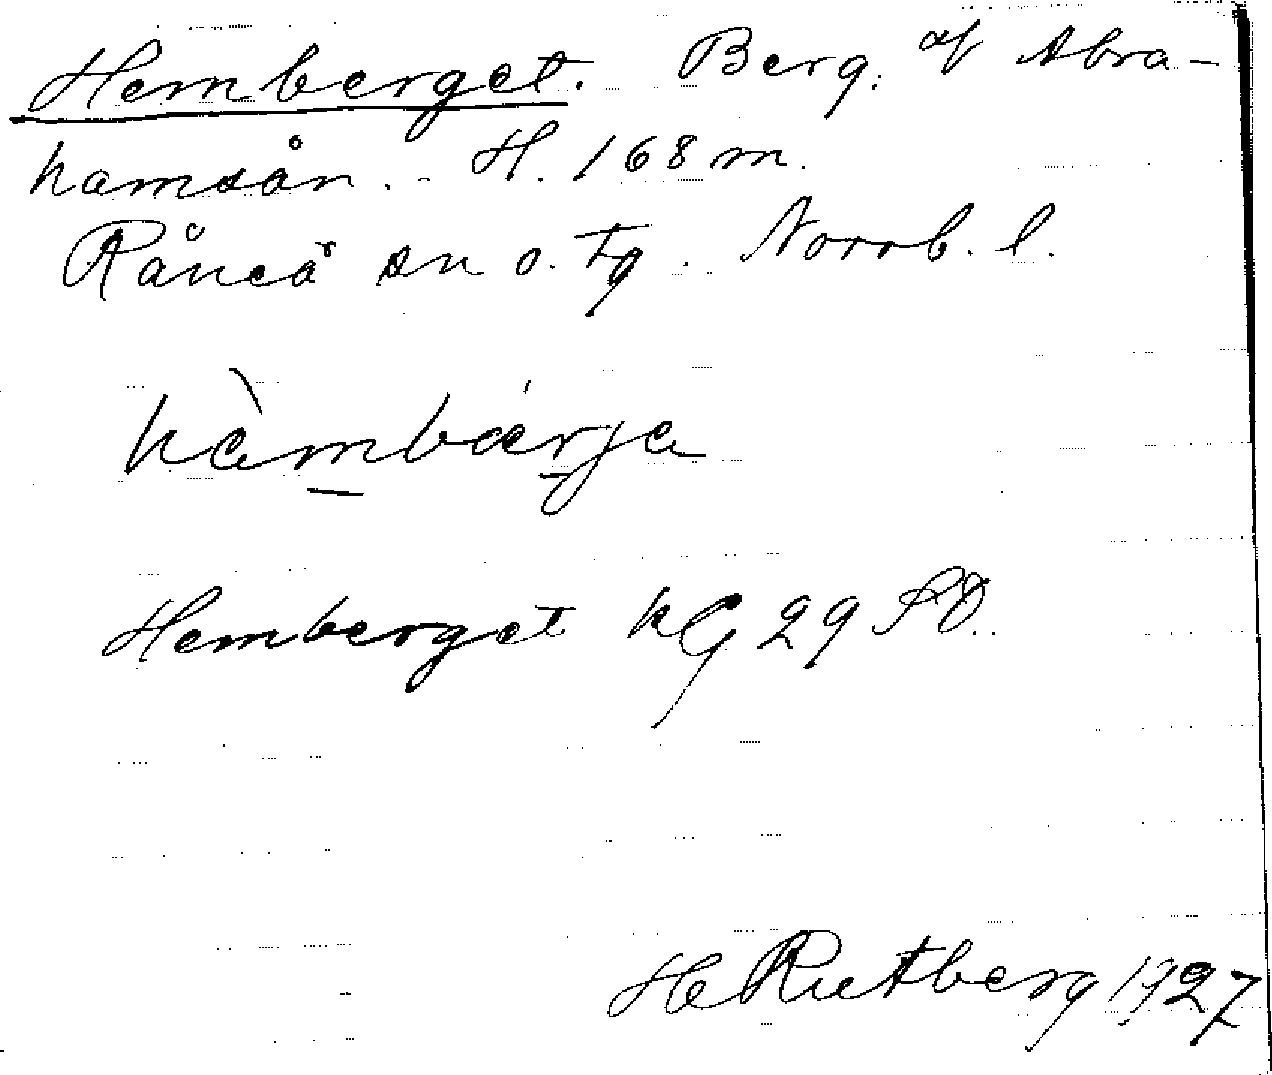 Hemberget. Berg. af Abra-
hamsån. - H. 168 m.
Råneå sn o. tg. Norrb. l.
hàmbárja
Hemberget KG 29 SO.
H Rutberg 1927